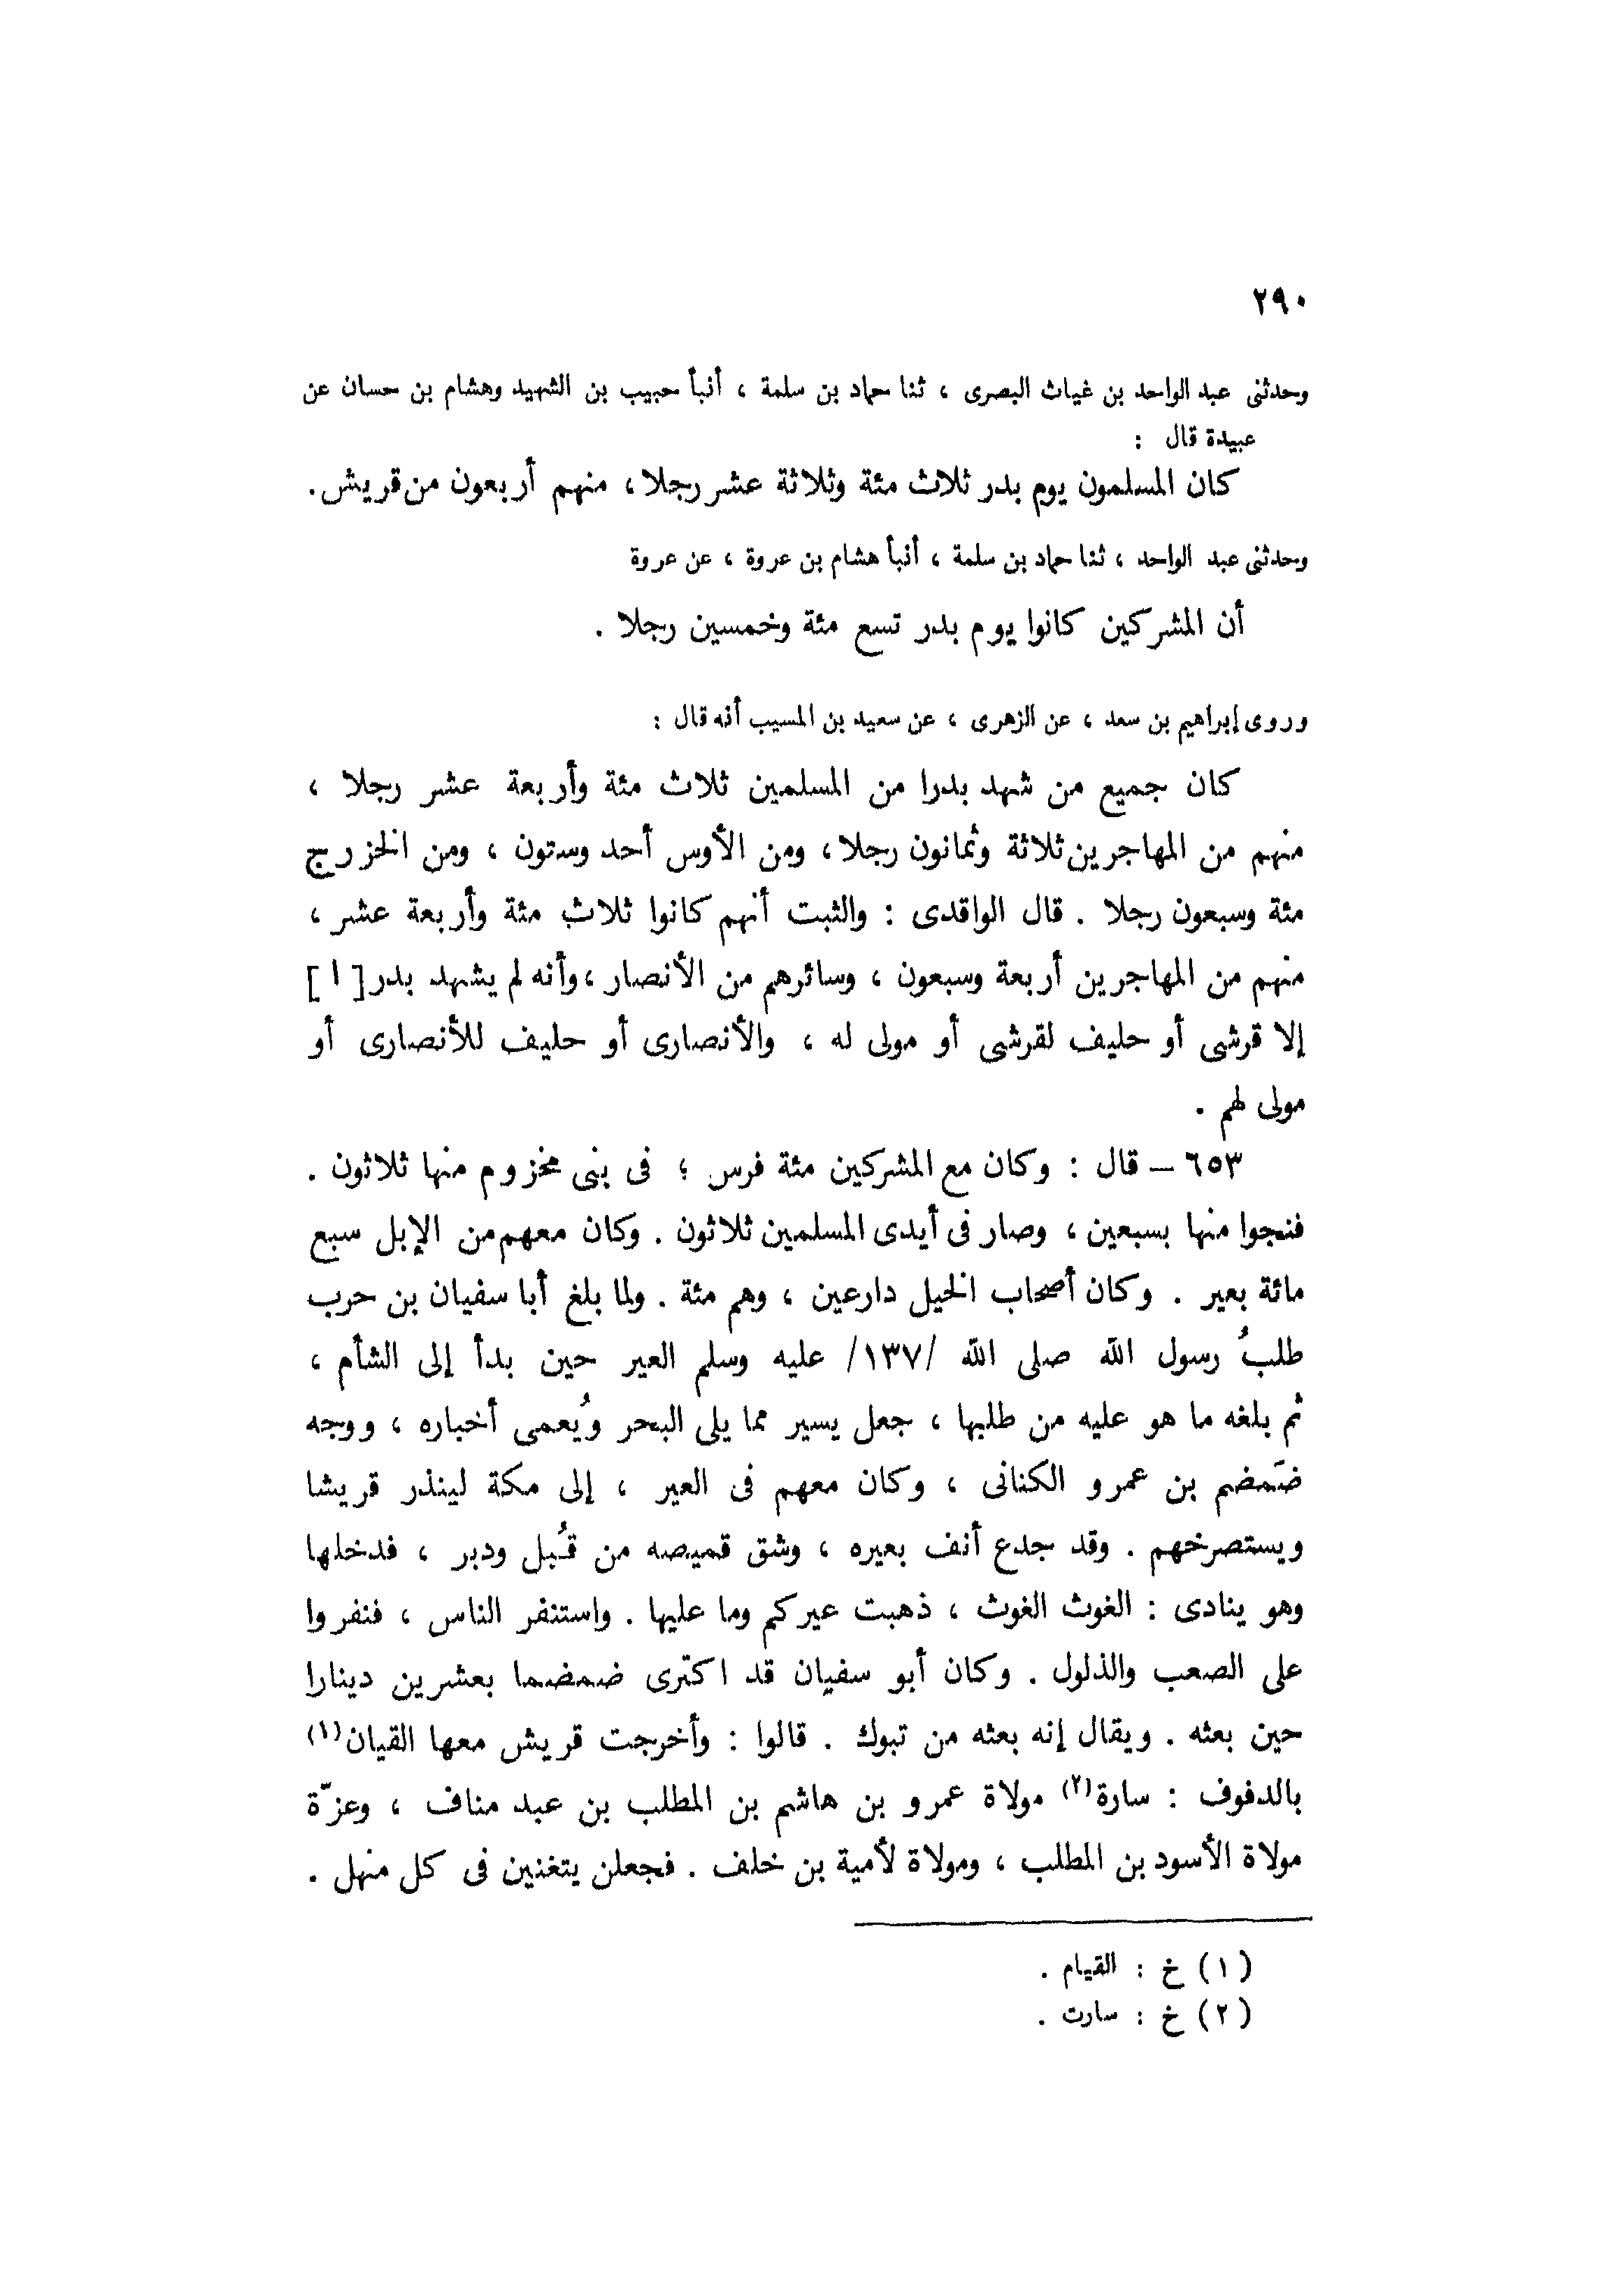 ٢٩٠
وحدثنى عبد الواحد بن غياث البصرى ، ثنا حماد بن سلمة ، أنبأ حبيب بن الشهيد وهشام بن حسان عن
عبيدة قال :
كان المسلمون يوم بدر ثلاث مئة وثلاثة عشر رجلا ، منهم أربعون من قريش .
وحدثنى عبد الواحد ، ثنا حماد بن سلمة ، أنبأ هشام بن عروة ، عن عروة
أن المشركين كانوا يوم بدر تسع مئة وخمسين رجلا .
وروى إبراهيم بن سعد ، عن الزهرى ، عن سعيد بن المسيب أنه قال :
كان جميع من شهد بدرا من المسلمين ثلاث مئة وأربعة عشر رجلا ،
منهم من المهاجرين ثلاثة وثمانون رجلا ، ومن الأوس أحد وستون ، ومن الخزرج
مئة وسبعون رجلا . قال الواقدى : والثبت أنهم كانوا ثلاث مئة وأربعة عشر ،
منهم من المهاجرين أربعة وسبعون ، وسائرهم من الأنصار ، وأنه لم يشهد بدر[ ا ]
إلا قرشى أو حليف لقرشى أو مولى له ، والأنصارى أو حليف للأنصارى أو
مولى لهم .
٦٥٣ – قال : وكان مع المشركين مئة فرس ؛ فى بنى مخزوم منها ثلاثون .
فنجوا منها بسبعين ، وصار فى أيدى المسلمين ثلاثون . وكان معهم من الإبل سبع
مائة بعير . وكان أصحاب الخيل دارعين ، وهم مئة . ولما بلغ أبا سفيان بن حرب
طلبُ رسول الله صلى الله /١٣٧/ عليه وسلم العير حين بدأ إلى الشأم ،
ثم بلغه ما هو عليه من طلبها ، جعل يسير مما يلى البحر ويُعمى أخباره ، ووجه
ضَمضم بن عمرو الكنانى ، وكان معهم فى العير ، إلى مكة لينذر قريشا
ويستصرخهم . وقد جدع أنف بعيره ، وشق قميصه من قُبل ودبر ، فدخلها
وهو ينادى : الغوث الغوث ، ذهبت عيركم وما عليها . واستنفر الناس ، فنفروا
على الصعب والذلول . وكان أبو سفيان قد اكترى ضمضما بعشرين دينارا
حين بعثه . ويقال إنه بعثه من تبوك . قالوا : وأخرجت قريش معها القيان(١)
بالدفوف : سارة(٢) مولاة عمرو بن هاشم بن المطلب بن عبد مناف ، وعزّة
مولاة الأسود بن المطلب ، ومولاة لأمية بن خلف . فجعلن يتغنين فى كل منهل .
(١) خ : القيام .
(٢) خ : سارت .